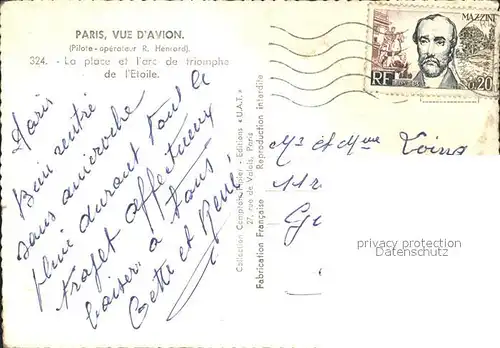 PARIS, VUE D'AVION.
(Pilote-opérateur R. Henrard).
324. - La place et l'arc de triomphe
de l'Etoile.
Paris
Bien rentré
sans anicroche
pluie durant tout le
trajet affectueux
baisers à tous
et René
Collection Comptoir - Editions "U.A.T."
27, rue de Valois, Paris
Fabrication Française Reproduction interdite
MAZZINI
RF
0,20
Mr et Mme
privacy protection
Datenschutz